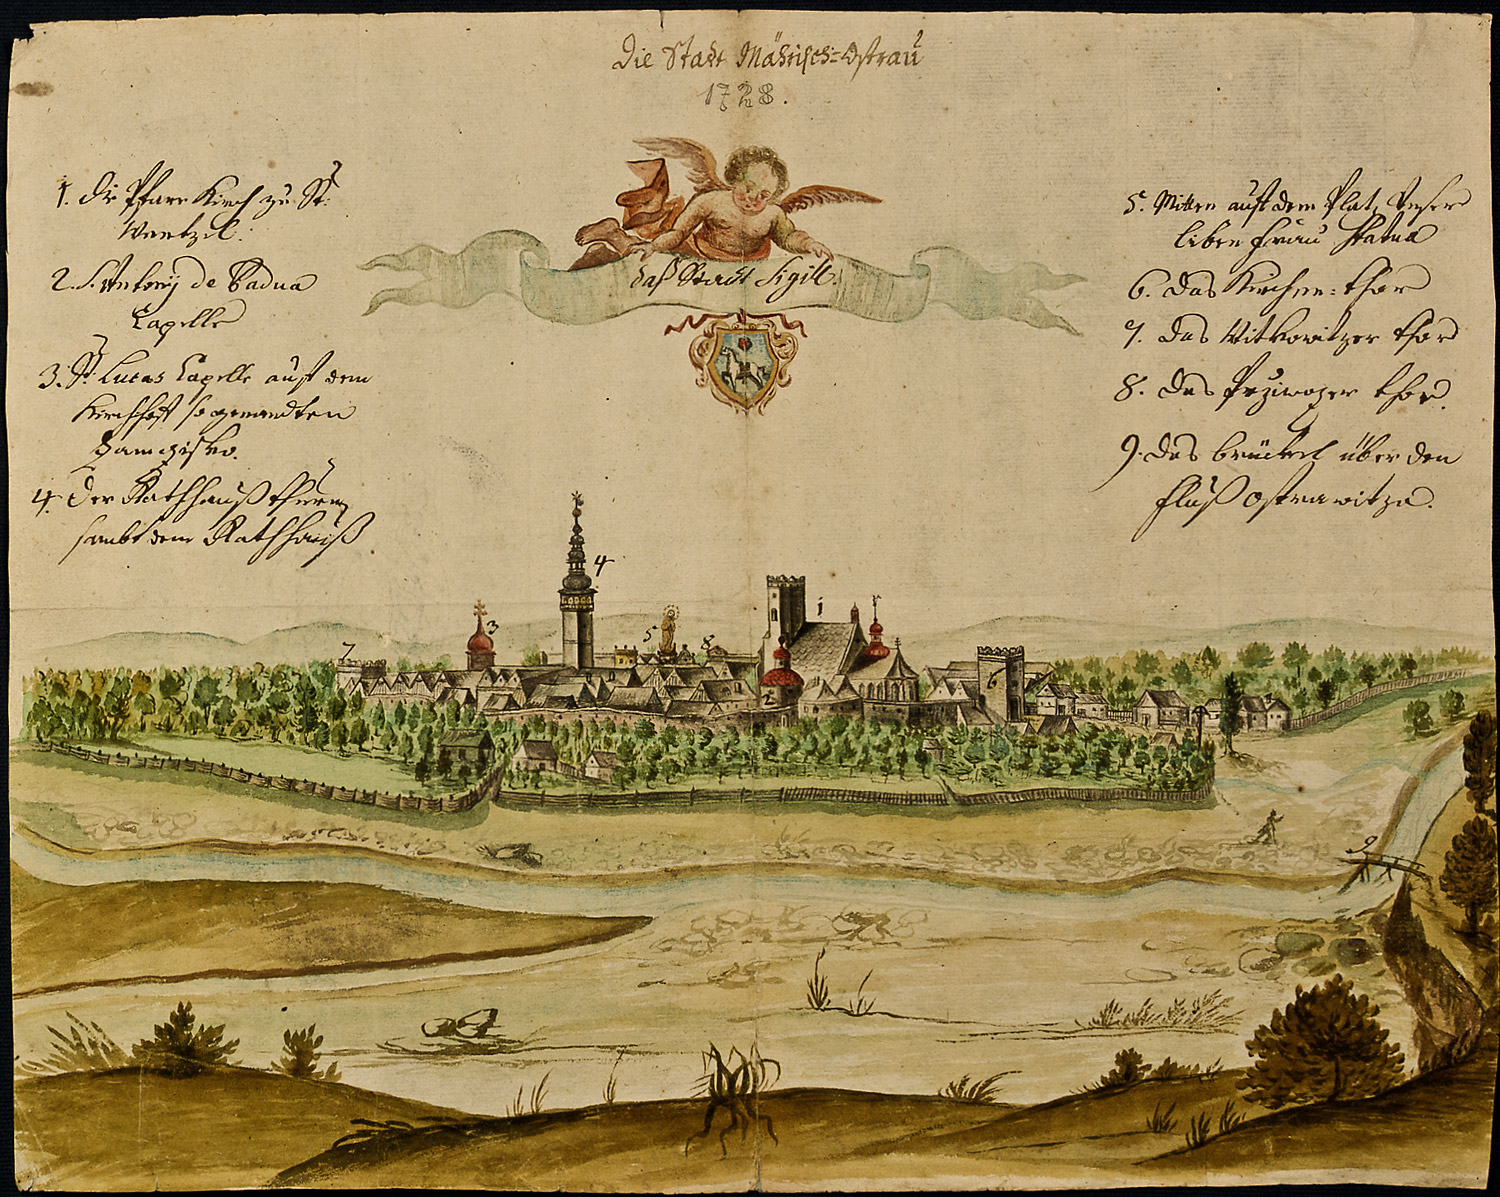 Die Stadt Mährisch-Ostrau
1728.
1. Die Pfarr Kirch zu St:
Wentzel.
2. S. Antonij de Padua
Capelle
3. St. Lucas Capelle auf dem
Kirchhoff so genandten
4. Der Rathhauß thurm
sambt dem Rathhauß
daß Stadt Sigill.
5. Mitten auf dem Platz Unser
liben Frau Statua
6. Das Kirchen-thor
7. Das Witkowitzer thor
8. Das Prziwozer thor.
9. Das brückel über den
Fluß Ostrawitza.
4
1
3
5
8
7
2
6
9